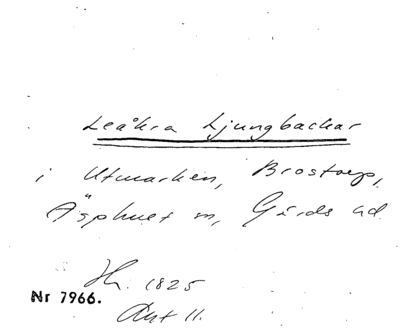 Leåkra Ljungbackar
i Utmarken, Brostorp,
Äsphult sn, Gärds hd.
Hr. 1825
Nr 7966.
Akt 11.